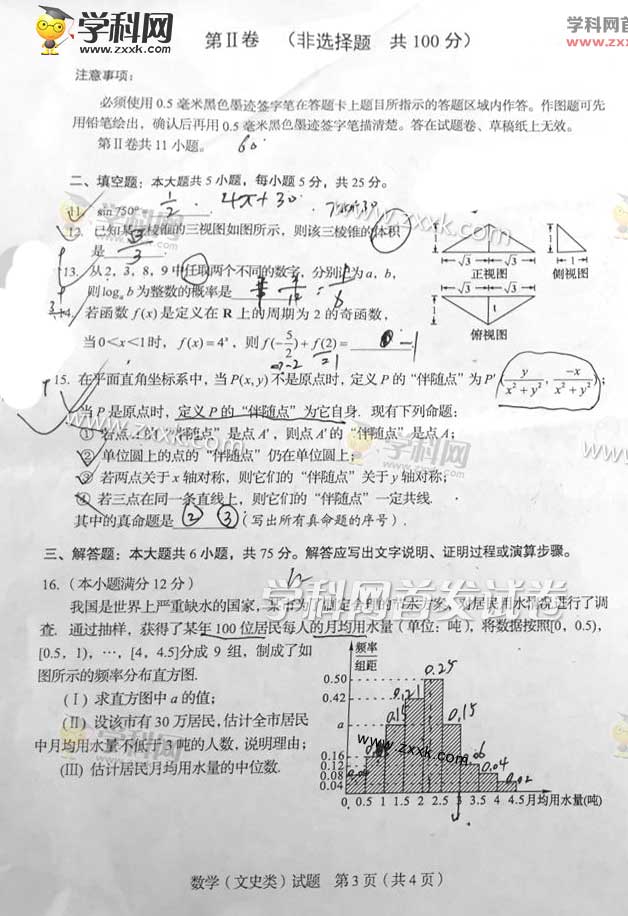 学科网
www.zxxk.com
学科网
www.zxxk
第Ⅱ卷 (非选择题 共 100 分)
注意事项:
必须使用 0.5 毫米黑色墨迹签字笔在答题卡上题目所指示的答题区域内作答。作图题可先
用铅笔绘出，确认后再用 0.5 毫米黑色墨迹签字笔描清楚。答在试题卷、草稿纸上无效。
第Ⅱ卷共 11 小题。
二、填空题：本大题共 5 小题，每小题 5 分，共 25 分。
11. sin 750°
1/2
www.zxxk.com
12. 已知某三棱锥的三视图如图所示，则该三棱锥的体积
是 √3/3
1
√3 √3
正视图
1
1
侧视图
√3 √3
1
俯视图
13. 从 2，3，8，9 中任取两个不同的数字，分别记为 a，b，
则 logₐ b 为整数的概率是
1/6
14. 若函数 f(x) 是定义在 R 上的周期为 2 的奇函数，
当 0<x<1时，f(x)=4ˣ，则 f(-5/2)+f(2)=
15. 在平面直角坐标系中，当 P(x, y) 不是原点时，定义 P 的“伴随点”为 P'(y/(x²+y²), -x/(x²+y²))；
当 P 是原点时，定义 P 的“伴随点”为它自身. 现有下列命题：
① 若点 的“伴随点”是点 A'，则点 A' 的“伴随点”是点 A；
② 单位圆上的点的“伴随点”仍在单位圆上；
③ 若两点关于 x 轴对称，则它们的“伴随点”关于 y 轴对称；
④ 若三点在同一条直线上，则它们的“伴随点”一定共线.
其中的真命题是 ② ③ (写出所有真命题的序号).
三、解答题：本大题共 6 小题，共 75 分。解答应写出文字说明、证明过程或演算步骤。
学科网首发试卷
16. (本小题满分 12 分)
我国是世界上严重缺水的国家，某市为 制定合理的节水方案，对居民用水情况进行了调
查. 通过抽样，获得了某年 100 位居民每人的月均用水量（单位：吨），将数据按照[0，0.5)，
[0.5，1)，…，[4，4.5]分成 9 组，制成了如
图所示的频率分布直方图.
(Ⅰ) 求直方图中 a 的值；
(Ⅱ) 设该市有 30 万居民，估计全市居民
中月均用水量不低于 3 吨的人数，说明理由；
(Ⅲ) 估计居民月均用水量的中位数.
频率
组距
0.50
0.42
a
0.16
0.12
0.08
0.04
0.25
0.21
0.15
0.04
0.02
www.zxxk.com
0 0.5 1 1.5 2 2.5 3 3.5 4 4.5 月均用水量(吨)
数学（文史类）试题 第 3 页（共 4 页）